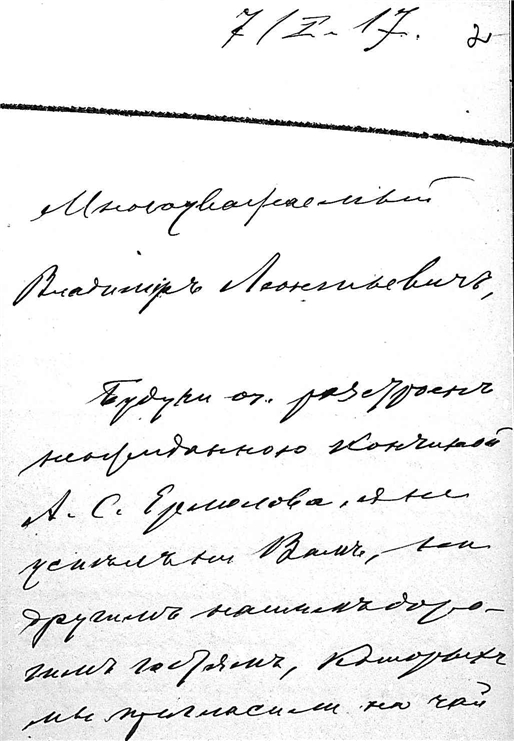 7/I-17. 2
Многоуважаемый
Владимиръ Леонтьевичъ,
Будучи оч. разстроенъ
неожиданною кончиной
А. С. Ермолова, я не
успѣлъ ни Вамъ, ни
другимъ нашимъ доро-
гимъ гостямъ, которыхъ
мы пригласили на чай